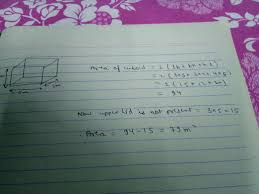 Area of cuboid = 2 (lb + bh + hl)
= 2 (
= 2 (15 + 12 + 20)
= 94
Now upper lid is not present = 3×5 = 15
Area = 94 - 15 = 79 m²